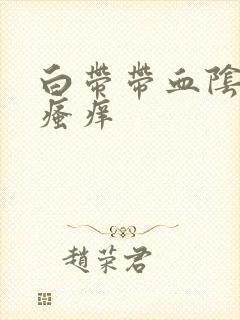 白带带血陰
瘙痒
趙荣君